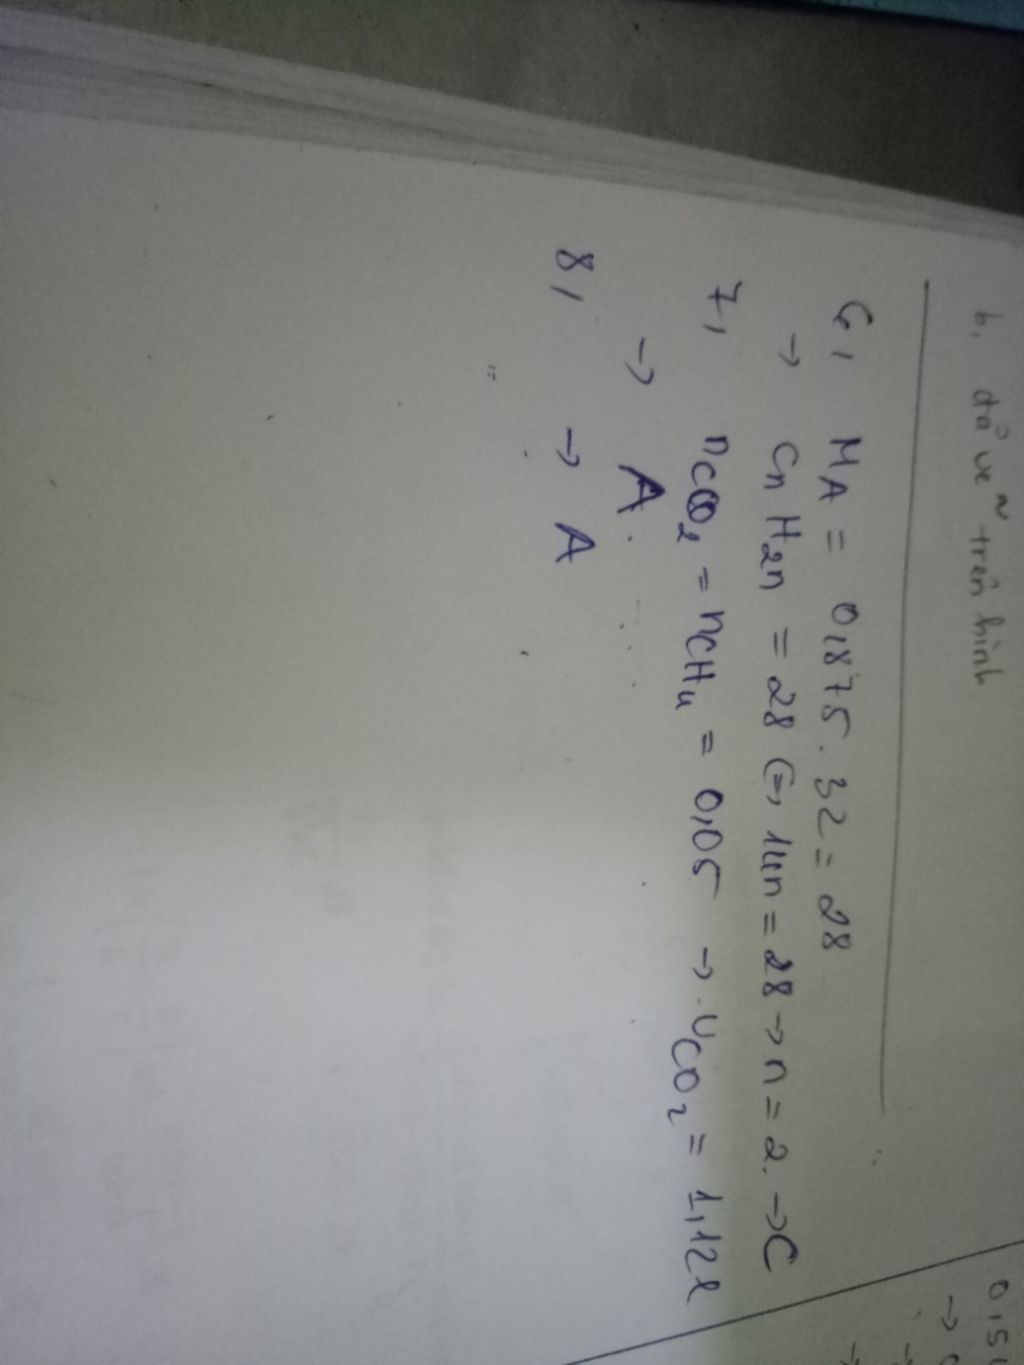 b, đã vẽ trên hình
6, MA = 0,875 . 32 = 28
→ CnH2n = 28 (=, 14n = 28 → n = 2. → C
7, nCO2 = nCH4 = 0,05 → VCO2 = 1,12l
→ A.
8, → A
0,51
→